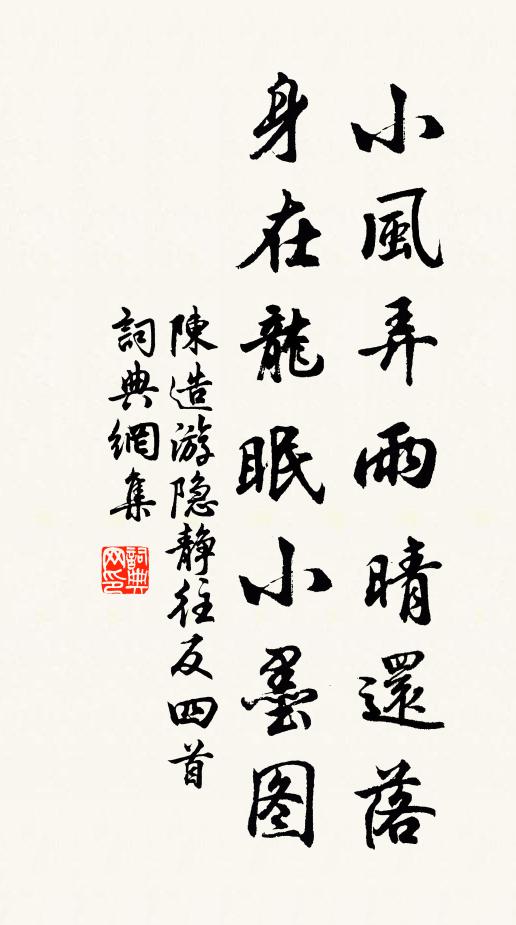 小風弄雨晴還落
身在龍眠小墨图
陳造游隐静往反四首
詞典網集
詞典网印